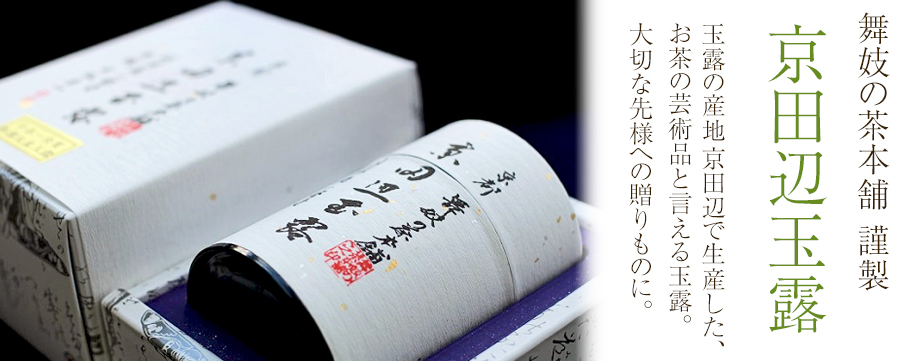 舞妓の茶本舗 謹製
京田辺玉露
玉露の産地京田辺で生産した、
お茶の芸術品と言える玉露。
大切な先様への贈りものに。
京都
舞妓の茶本舗
京田辺玉露